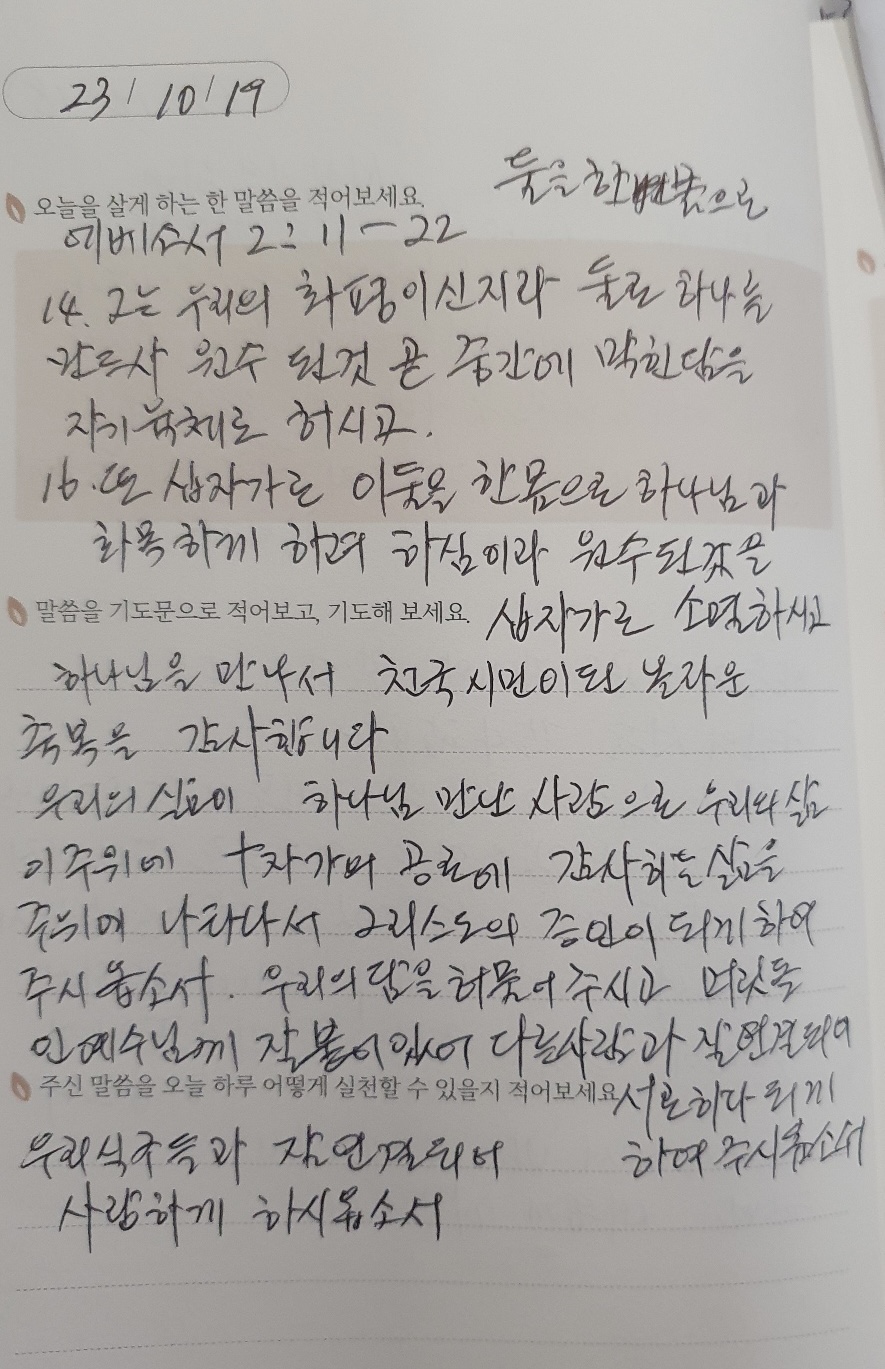 23/10/19
둘을 한 몸으로
오늘을 살게 하는 한 말씀을 적어보세요.
에베소서 2:11-22
14. 그는 우리의 화평이신지라 둘로 하나를
만드사 원수 된것 곧 중간에 막힌담을
자기육체로 허시고.
16. 또 십자가로 이둘을 한몸으로 하나님과
화목하게 하려 하심이라 원수된것을
십자가로 소멸하시고
말씀을 기도문으로 적어보고, 기도해 보세요.
하나님을 만나서 천국시민이된 놀라운
축복을 감사합니다
우리의 삶이 하나님 만난 사람으로 우리의 삶
이주위에 十자가의 공로에 감사하는 삶을
주위에 나타나서 그리스도의 증인이 되게하여
주시옵소서. 우리의 담을 허물어 주시고 머릿돌
인예수님께 잘붙어있어 다른사람과 잘연결되어
서로하나 되게
하여 주시옵소서
주신 말씀을 오늘 하루 어떻게 실천할 수 있을지 적어보세요.
우리식구들과 잘연결되어
사랑하게 하시옵소서